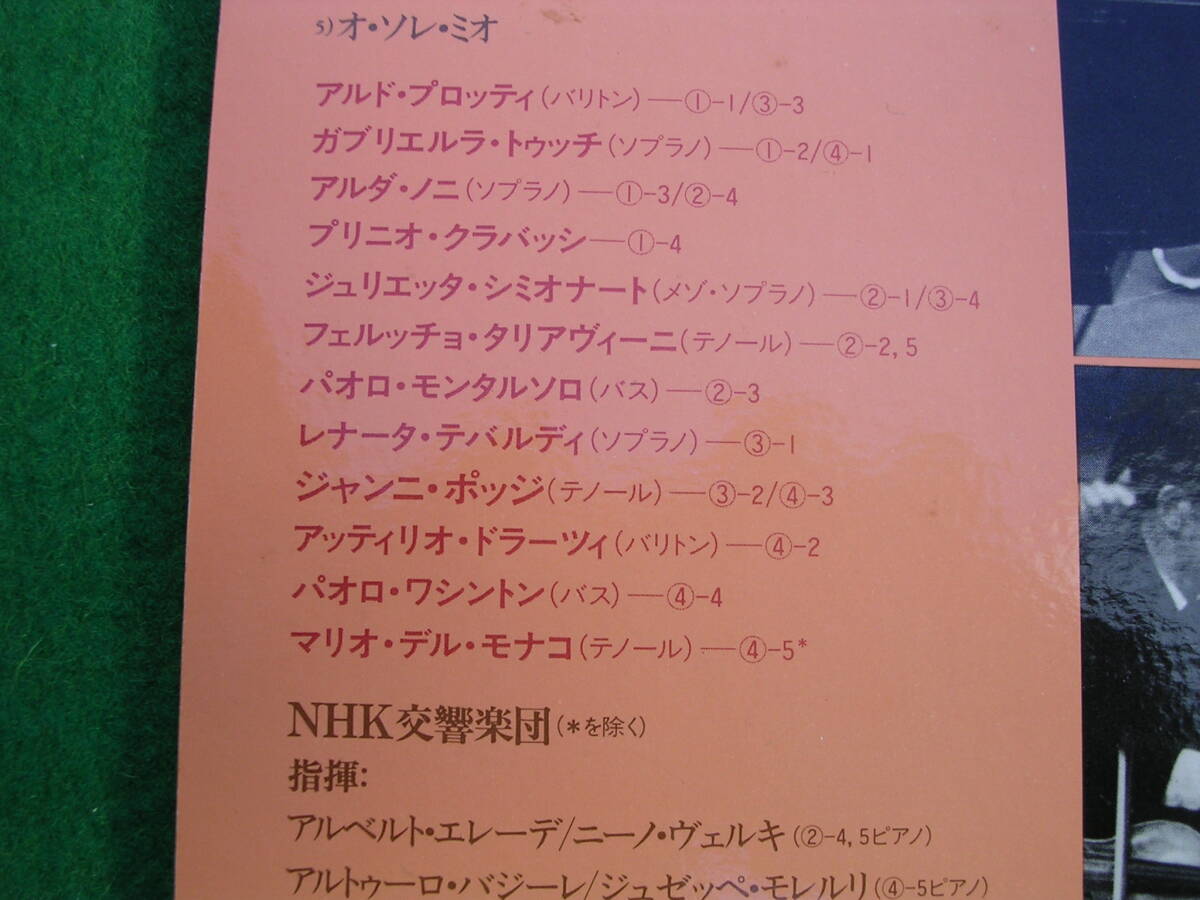 5)オ・ソレ・ミオ
アルド・プロッティ(バリトン)—①-1/③-3
ガブリエルラ・トゥッチ(ソプラノ)—①-2/④-1
アルダ・ノニ(ソプラノ)—①-3/②-4
プリニオ・クラバッシ—①-4
ジュリエッタ・シミオナート(メゾ・ソプラノ)—②-1/③-4
フェルッチョ・タリアヴィーニ(テノール)—②-2,5
パオロ・モンタルソロ(バス)—②-3
レナータ・テバルディ(ソプラノ)—③-1
ジャンニ・ポッジ(テノール)—③-2/④-3
アッティリオ・ドラーツィ(バリトン)—④-2
パオロ・ワシントン(バス)—④-4
マリオ・デル・モナコ(テノール)—④-5*
NHK交響楽団(*を除く)
指揮:
アルベルト・エレーデ/ニーノ・ヴェルキ(②-4,5ピアノ)
アルトゥーロ・バジーレ/ジュゼッペ・モレルリ(④-5ピアノ)